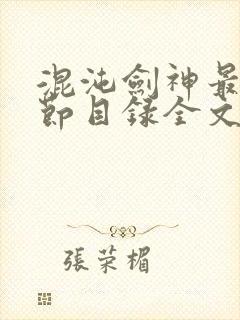 混沌劍神最
節目錄全文
張荣楣